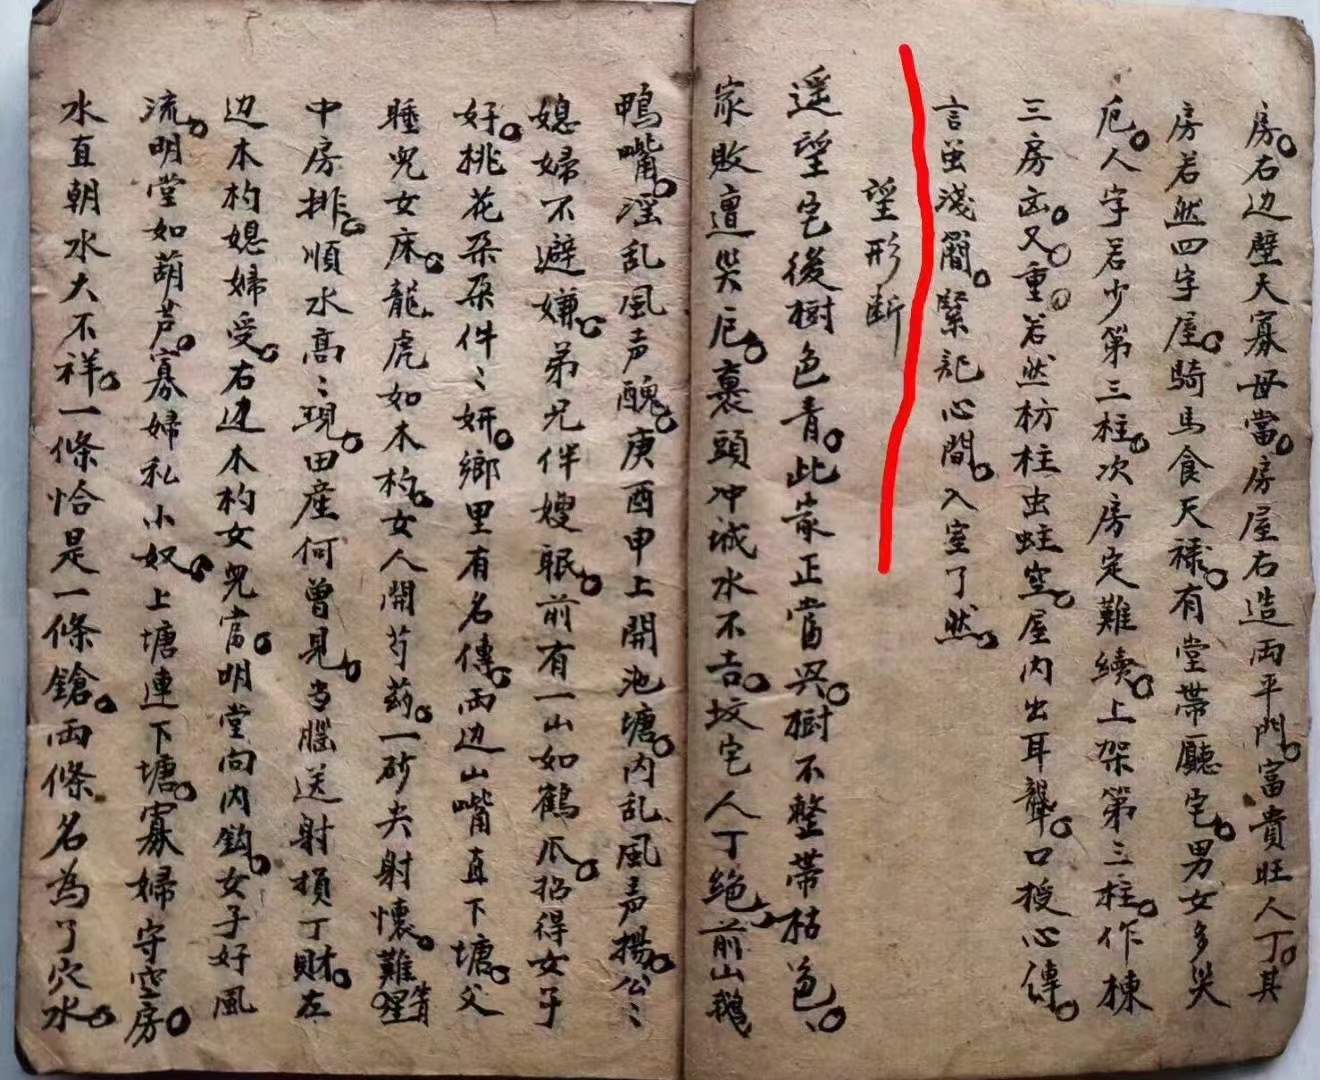 房。右边壁天寡母當。房屋右造両平門。富貴旺人丁。其
房若然四字屋。騎馬食天禄。有堂帶廳宅。男女多災
厄。人字若少第三柱。次房定難續。上架第三柱。作棟
三房凶。又重。若然枋柱虫蛀空。屋内出耳聾。口授心傳。
言虽淺簡。緊記心間。入室了然。
望形断
遥望宅後樹色青。此家正當兴。樹不整帶枯色、。
家敗遭災厄。裹頭冲城水不吉。坟宅人丁绝。前山鵝
鴨嘴。淫乱風声醜。庚酉申上開池塘。内乱風声揚。公〻
媳婦不避嫌。弟兄伴嫂眠。前有一山如鶴爪。招得女子
好。桃花朶朶件〻妍。鄉里有名傳。両边山嘴直下塘。父
睡兒女床。龍虎如木杓。女人開芍药。一砂尖射懷。難
中房排。順水高〻現。田産何曾見。当腦送射損丁财。左
边木杓媳婦受。右边木杓女兒當。明堂向内鈎。女子好風
流。明堂如葫芦。寡婦私小奴。上塘連下塘。寡婦守空房。
水直朝水大不祥。一條恰是一條鎗。両條名為了穴水。